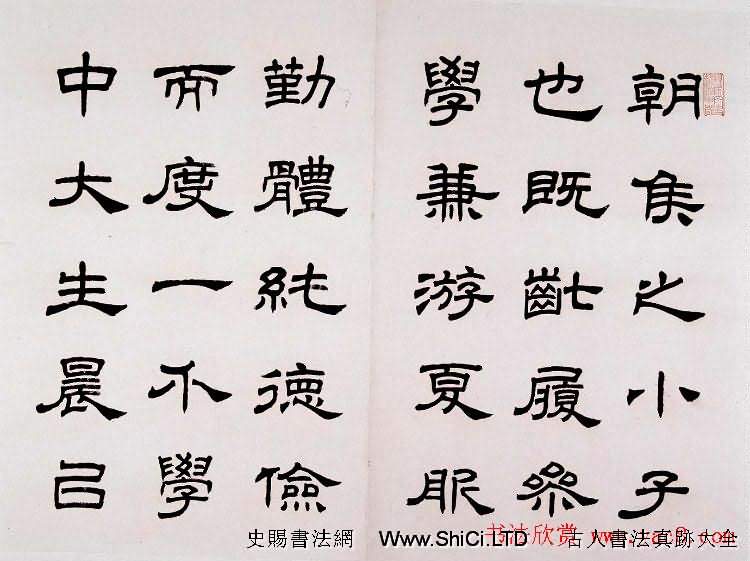 朝侯之小子
也既齔履參
學兼游夏服
勤體純德儉
而度一不學
中大生晨已
史賜書法網 Www.ShiCi.LTD 古人書法真跡大全
书法欣赏